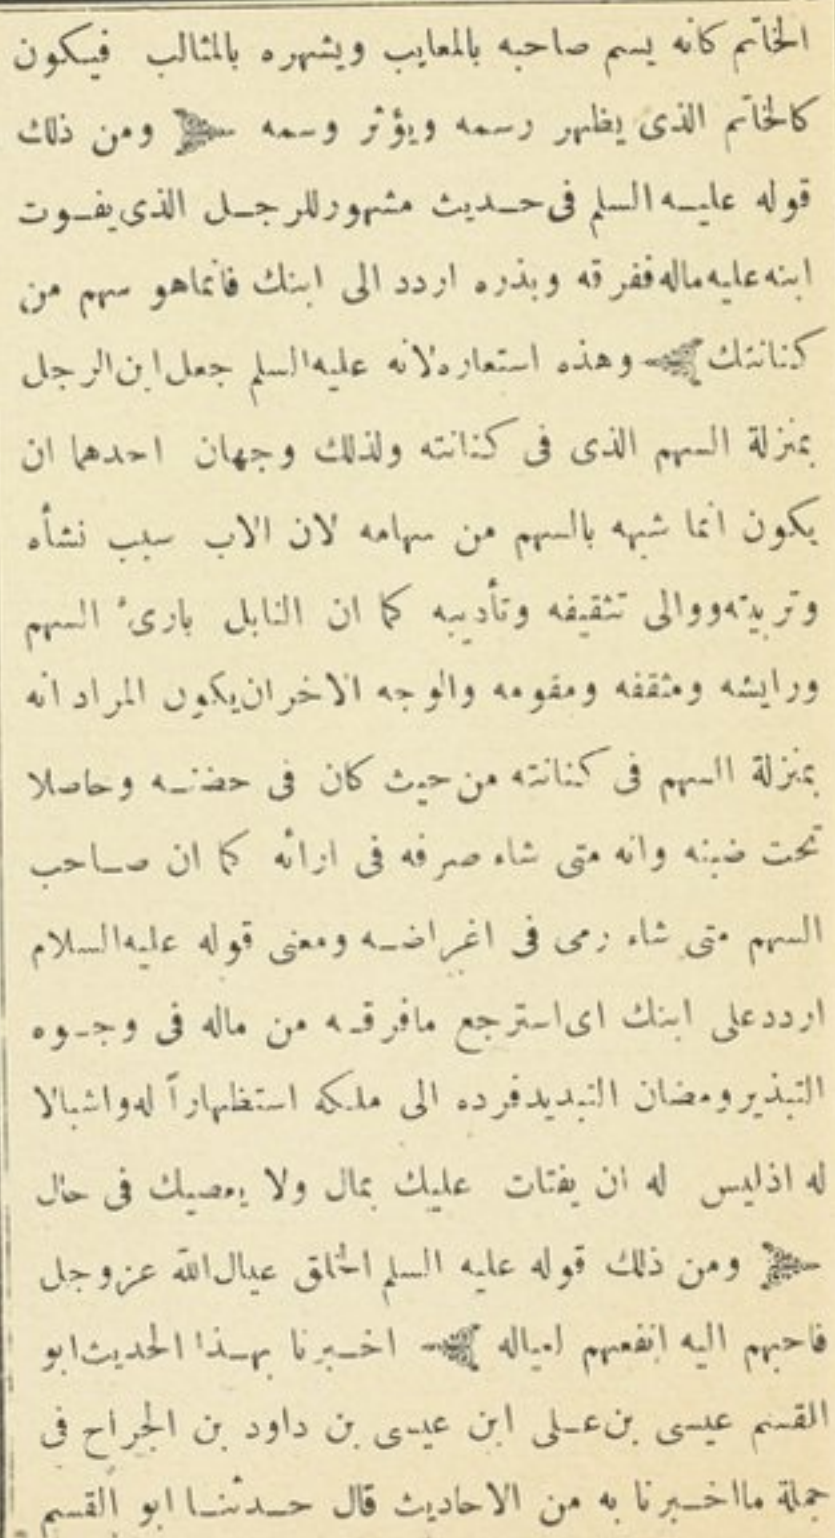 الخاتم كانه يسم صاحبه بالمعايب ويشهره بالمثالب فيكون
كالخاتم الذى يظهر رسمه ويؤثر وسمه ومن ذلك
قوله عليه السلم فى حديث مشهور للرجل الذى يفوت
ابنه عليه ماله ففرقه وبذره اردد الى ابنك فانما هو سهم من
كنانتك وهذه استعاره لانه عليه السلم جعل ابن الرجل
بمنزلة السهم الذى فى كنانته ولذلك وجهان احدهما ان
يكون انما شبهه بالسهم من سهامه لان الاب سبب نشأه
وتربيته ووالى تثقيفه وتأديبه كما ان النابل بارئ السهم
ورايشه ومثقفه ومقومه والوجه الاخر ان يكون المراد انه
بمنزلة السهم فى كنانته من حيث كان فى حضنه وحاصلا
تحت ضبنه وانه متى شاء صرفه فى ارائه كما ان صاحب
السهم متى شاء رمى فى اغراضه ومعنى قوله عليه السلام
اردد على ابنك اى استرجع مافرقه من ماله فى وجوه
التبذير ومضان التبديد فرده الى ملكه استظهاراً له واشبالا
له اذليس له ان يفتات عليك بمال ولا يعصيك فى حال
ومن ذلك قوله عليه السلم الخلق عيال الله عزوجل
فاحبهم اليه انفعهم لعياله اخبرنا بهذا الحديث ابو
القسم عيسى بن على ابن عيسى بن داود بن الجراح فى
جملة مااخبرنا به من الاحاديث قال حدثنا ابو القسم